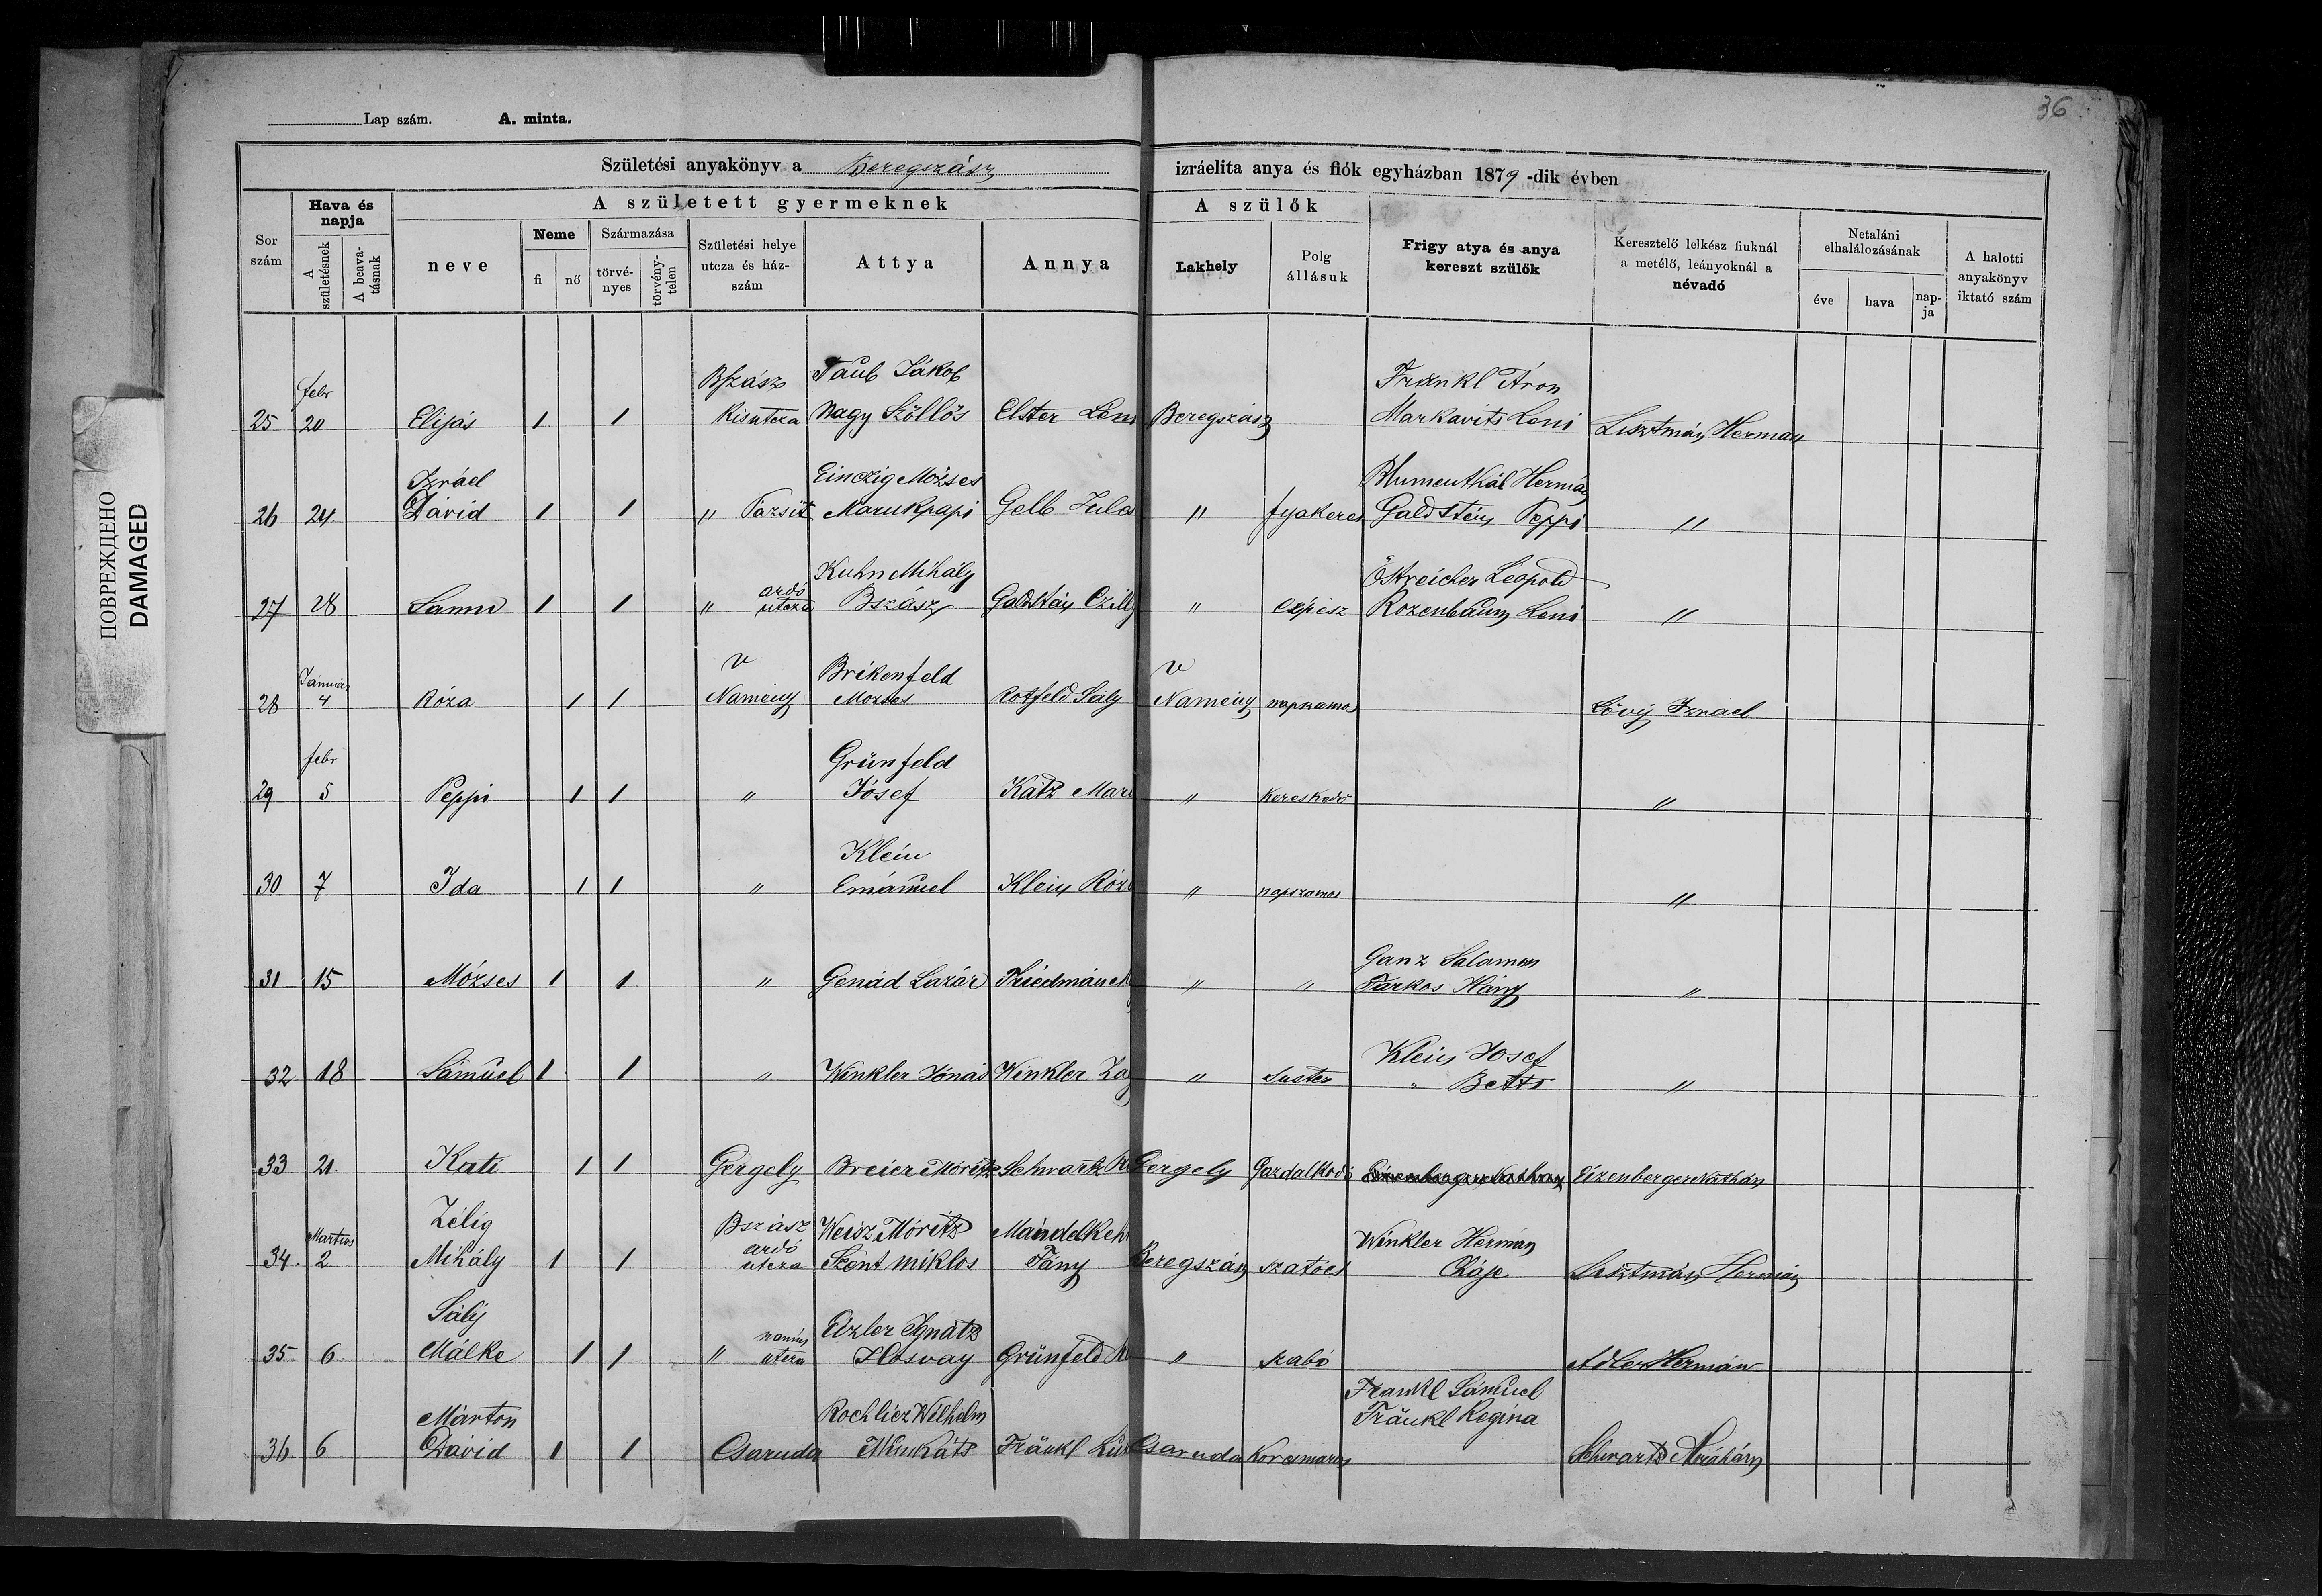 36
Lap szám. A. minta.
Születési anyakönyv a Beregszász izráelita anya és fiók egyházban 1879-dik évben
Sor szám
Hava és napja
A születésnek
A beavatásnak
A született gyermeknek
neve
Neme
fi
nő
Származása
törvényes
törvénytelen
Születési helye utcza és házszám
Attya
Annya
A szülők
Lakhely
Polg állásuk
Frigy atya és anya kereszt szülők
Keresztelő lelkész fiuknál a metélő, leányoknál a névadó
Netaláni elhalálozásának
éve
hava
napja
A halotti anyakönyv iktató szám
febr Bszász Taub Jákob Fränkl Áron
25 20 Elijás 1 1 Kisutcza Nagy Szöllös Elster Leni Beregszász Markavits Leni Lisztmán Herman
Izráel Einczig Mózses Blumenthál Hermán
26 24 Dávid 1 1 " Marukpapi Gelb Jule " fyakeres Galdstein Peppi "
ardó Kuhn Mihály Östreicher Leopold
27 28 Samu 1 1 " utcza Bszász Galdstáin Czilly " czipisz Rozenbaum Leni "
Január v Brikenfeld v
28 4 Róza 1 1 Namény Mozses Rotfeld Sály Namény napszamos Lövÿ Izrael
febr Grünfeld
29 5 Peppi 1 1 " Jósef Kátz Mari " Kereskedő "
Klein
30 7 Ida 1 1 " Emánuel Klein Róza " napszamos "
Ganz Salamon
31 15 Mózses 1 1 " Genád Lazár Friedmán " " Farkas Háni "
Klein Josef
32 18 Sámuel 1 1 " Winkler Jónás Winkler " Suster " Betti "
33 21 Kati 1 1 Gergely Breier Móritz Schwartz Gergely Gazdalkodó Eizenberger Nathán Eizenberger Náthán
Zélig Bszász Weisz Móritz Mándelkehr Winkler Hermán
Martius ardó
34 2 Mihály 1 1 utcza Szent miklos Fány Beregszász szatócs Cháje Lisztmán Hermán
Sálÿ namény Eizler Ignátz
35 6 Málke 1 1 " utcza Ilosvay Grünfeld " szabó Adler Hermán
Frankl Sámuel
Márton Rochlicz Wilhelm Fränkl Regina
36 6 Dávid 1 1 Csaruda Munkáts Fränkl Csaruda Korcsmaros Schwartz Abráhám
ПОВРЕЖДЕНО
DAMAGED